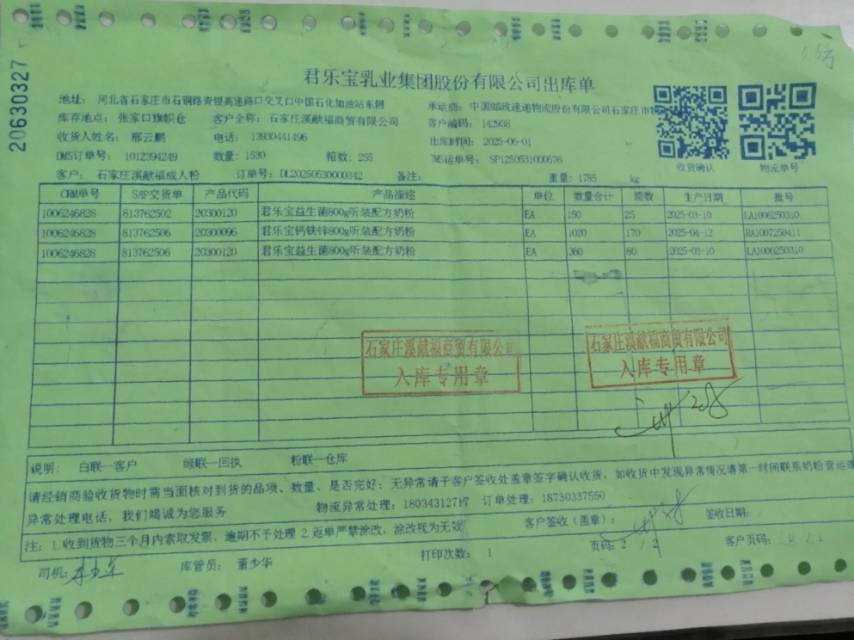 20630327
君乐宝乳业集团股份有限公司出库单
地址: 河北省石家庄市石铜路青银高速路口交叉口中国石化加油站东侧 承运商: 中国邮政速递物流股份有限公司石家庄市
库存地点: 张家口旗帜仓 客户全称: 石家庄溪献福商贸有限公司 客户编码: 142938
收货人姓名: 邢云鹏 电话: 13930441496 出库时间: 2025-06-01
DMS订单号: 1012394249 数量: 1530 箱数: 255 TMS运单号: SP1250531000676
收货确认 物流单号
客户: 石家庄溪献福成人粉 订单号: DL20250530000342 备注: 重量: 1785 kg
CRM单号 SAP交货单 产品代码 产品描述 单位 数量合计 箱数 生产日期 批号
1006246828 813762502 20300120 君乐宝益生菌800g听装配方奶粉 EA 150 25 2025-03-10 LA1006250310
1006246828 813762506 20300096 君乐宝钙铁锌800g听装配方奶粉 EA 1020 170 2025-04-12
1006246828 813762506 20300120 君乐宝益生菌800g听装配方奶粉 EA 360 60 2025-03-10 LA1006250310
石家庄溪献福商贸有限公司
入库专用章
石家庄溪献福商贸有限公司
入库专用章
说明: 白联—客户 绿联—回执 粉联—仓库
请经销商验收货物时需当面核对到货的品项、数量、是否完好; 无异常请于客户签收处盖章签字确认收货, 如收货中发现异常情况请第一时间联系奶粉营运
异常处理电话, 我们竭诚为您服务 物流异常处理: 18034312717 订单处理: 18730337550
客户签收(盖章): 签收日期:
注: 1.收到货物三个月内索取发票, 逾期不予处理 2.返单严禁涂改, 涂改视为无效
打印次数: 1 页码: 2 / 2 客户页码:
司机: 库管员: 董少华